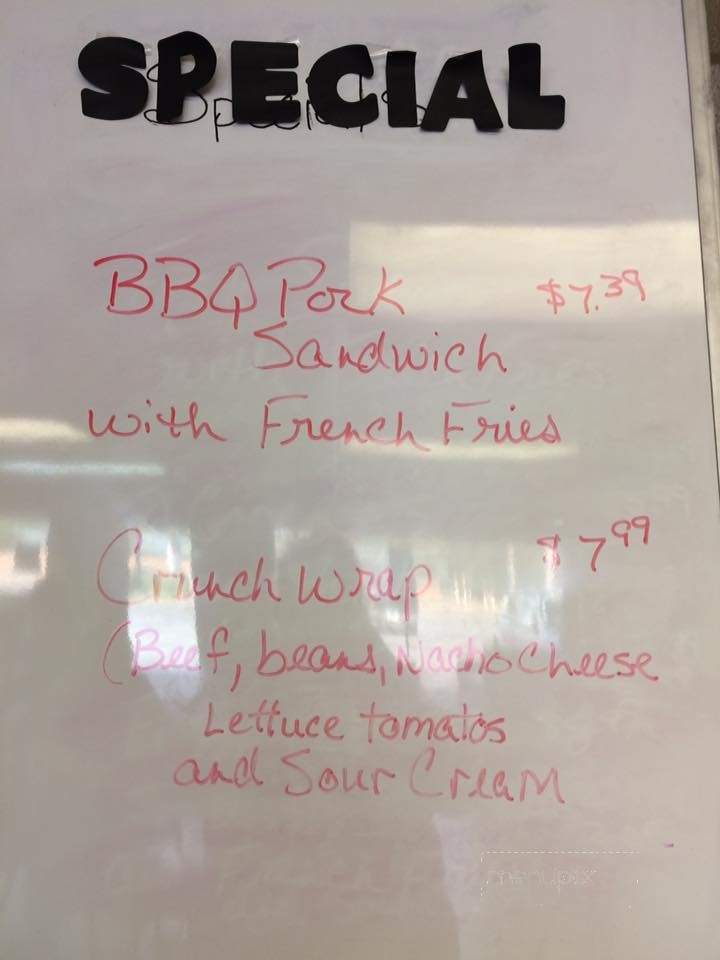 SPECIAL
Specials
BBQ Pork $7.39
Sandwich
with French Fries
Crunch Wrap $7.99
(Beef, beans, Nacho Cheese
Lettuce tomatos
and Sour Cream
menupix